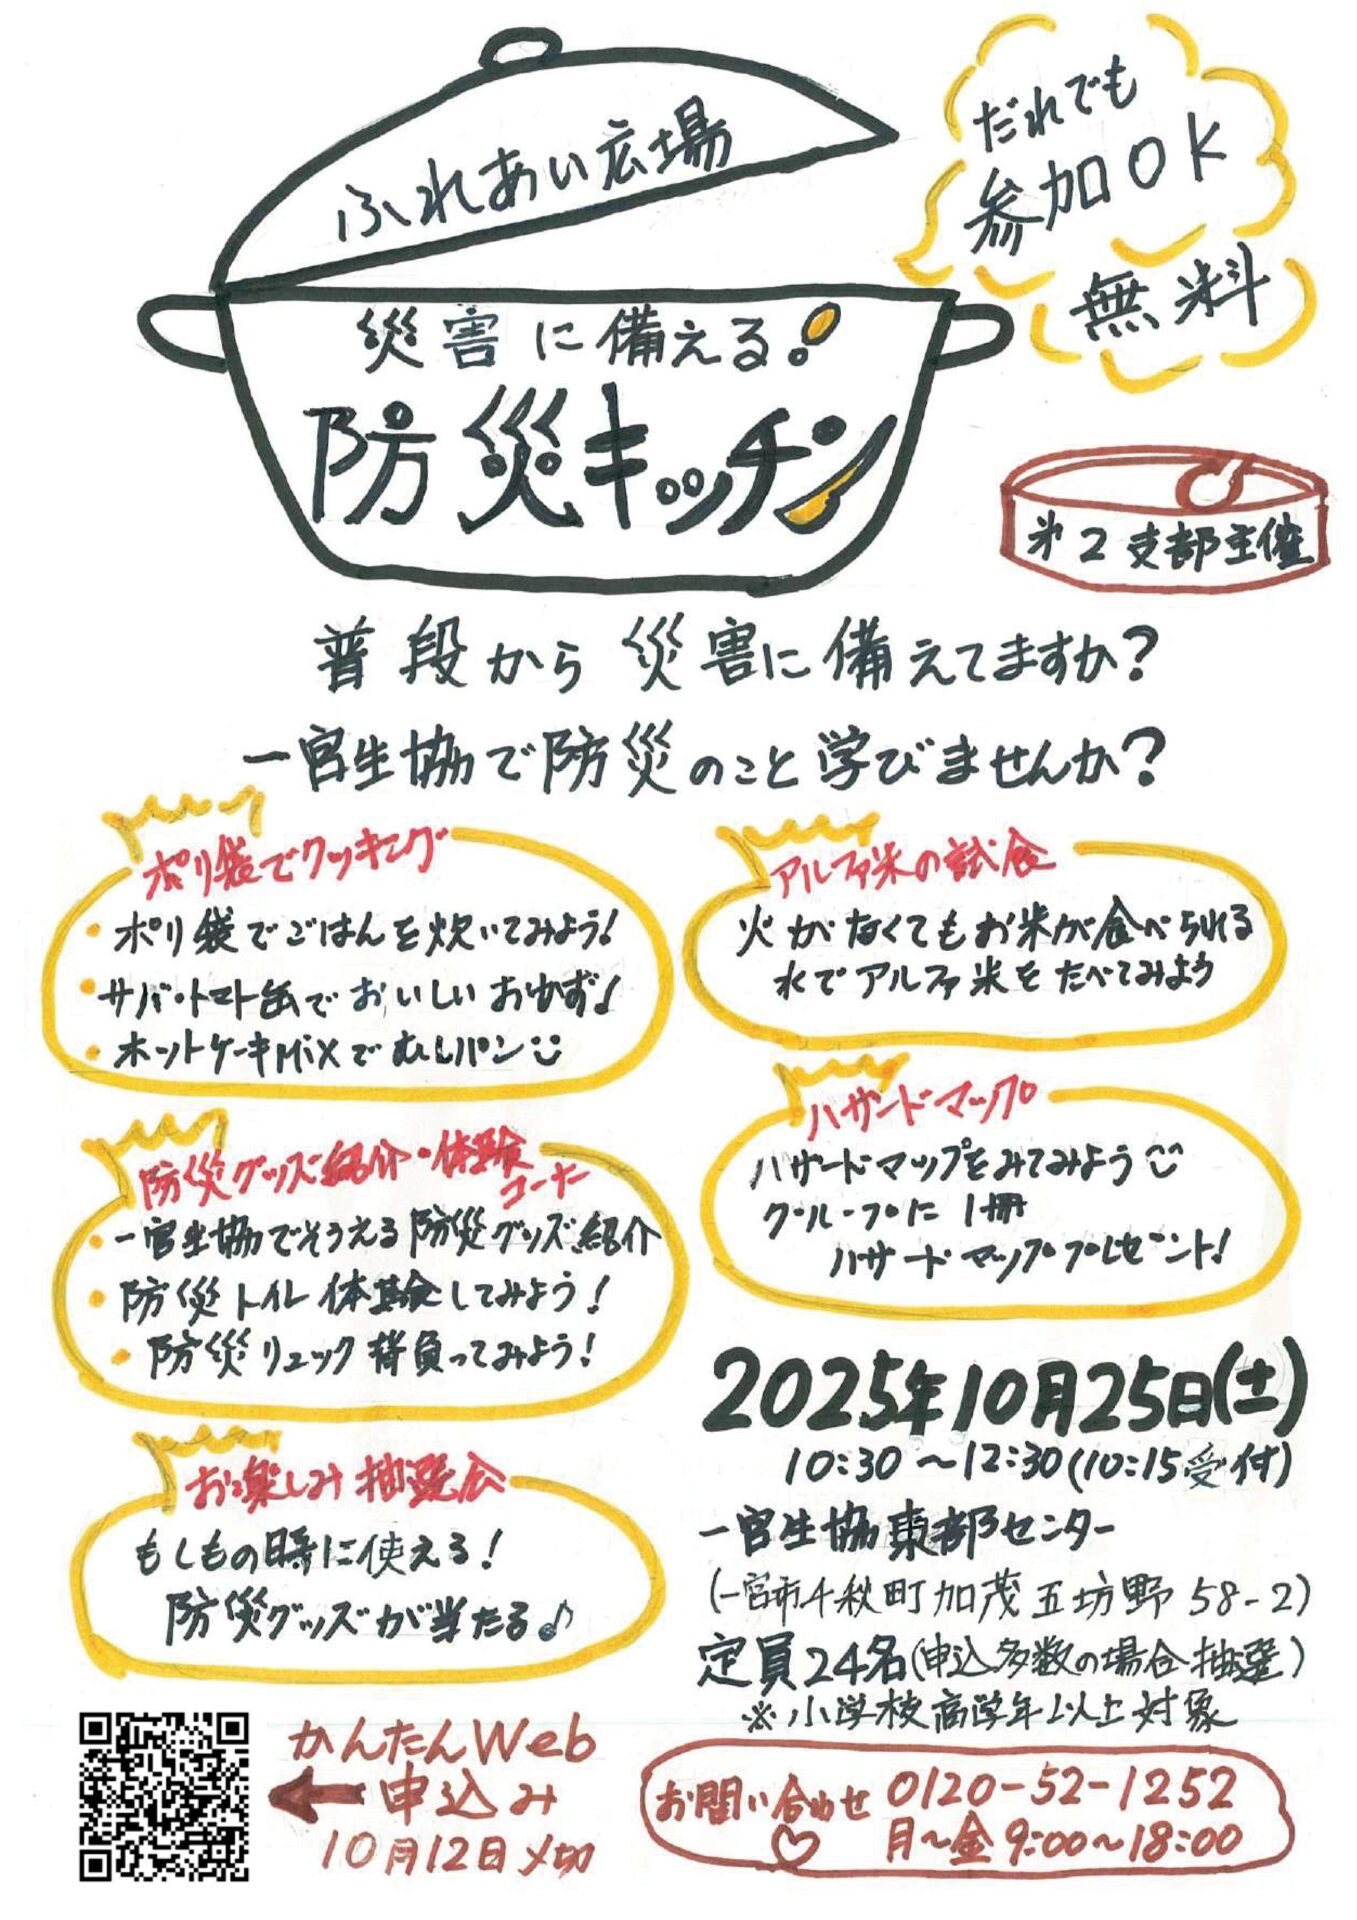 ふれあい広場
だれでも
参加OK
無料
災害に備える!
防災キッチン
第2支部主催
普段から災害に備えてますか?
一宮生協で防災のこと学びませんか?
ポリ袋でクッキング
・ポリ袋でごはんを炊いてみよう!
・サバ・トマト缶でおいしいおかず♪
・ホットケーキMixでむしパン
アルファ米の試食
火がなくてもお米が食べられる
水でアルファ米をたべてみよう
防災グッズ紹介・体験
コーナー
・一宮生協でそろえる防災グッズ紹介
・防災トイレ体験してみよう!
・防災リュック背負ってみよう!
ハザードマップ
ハザードマップをみてみよう
グループに1冊
ハザードマッププレゼント!
お楽しみ抽選会
もしもの時に使える!
防災グッズが当たる♪
2025年10月25日(土)
10:30~12:30(10:15受付)
一宮生協東部センター
(一宮市千秋町加茂五坊野58-2)
定員24名(申込多数の場合抽選)
※小学校高学年以上対象
かんたんWeb
申込み
10月12日〆切
お問い合わせ
0120-52-1252
月~金9:00~18:00